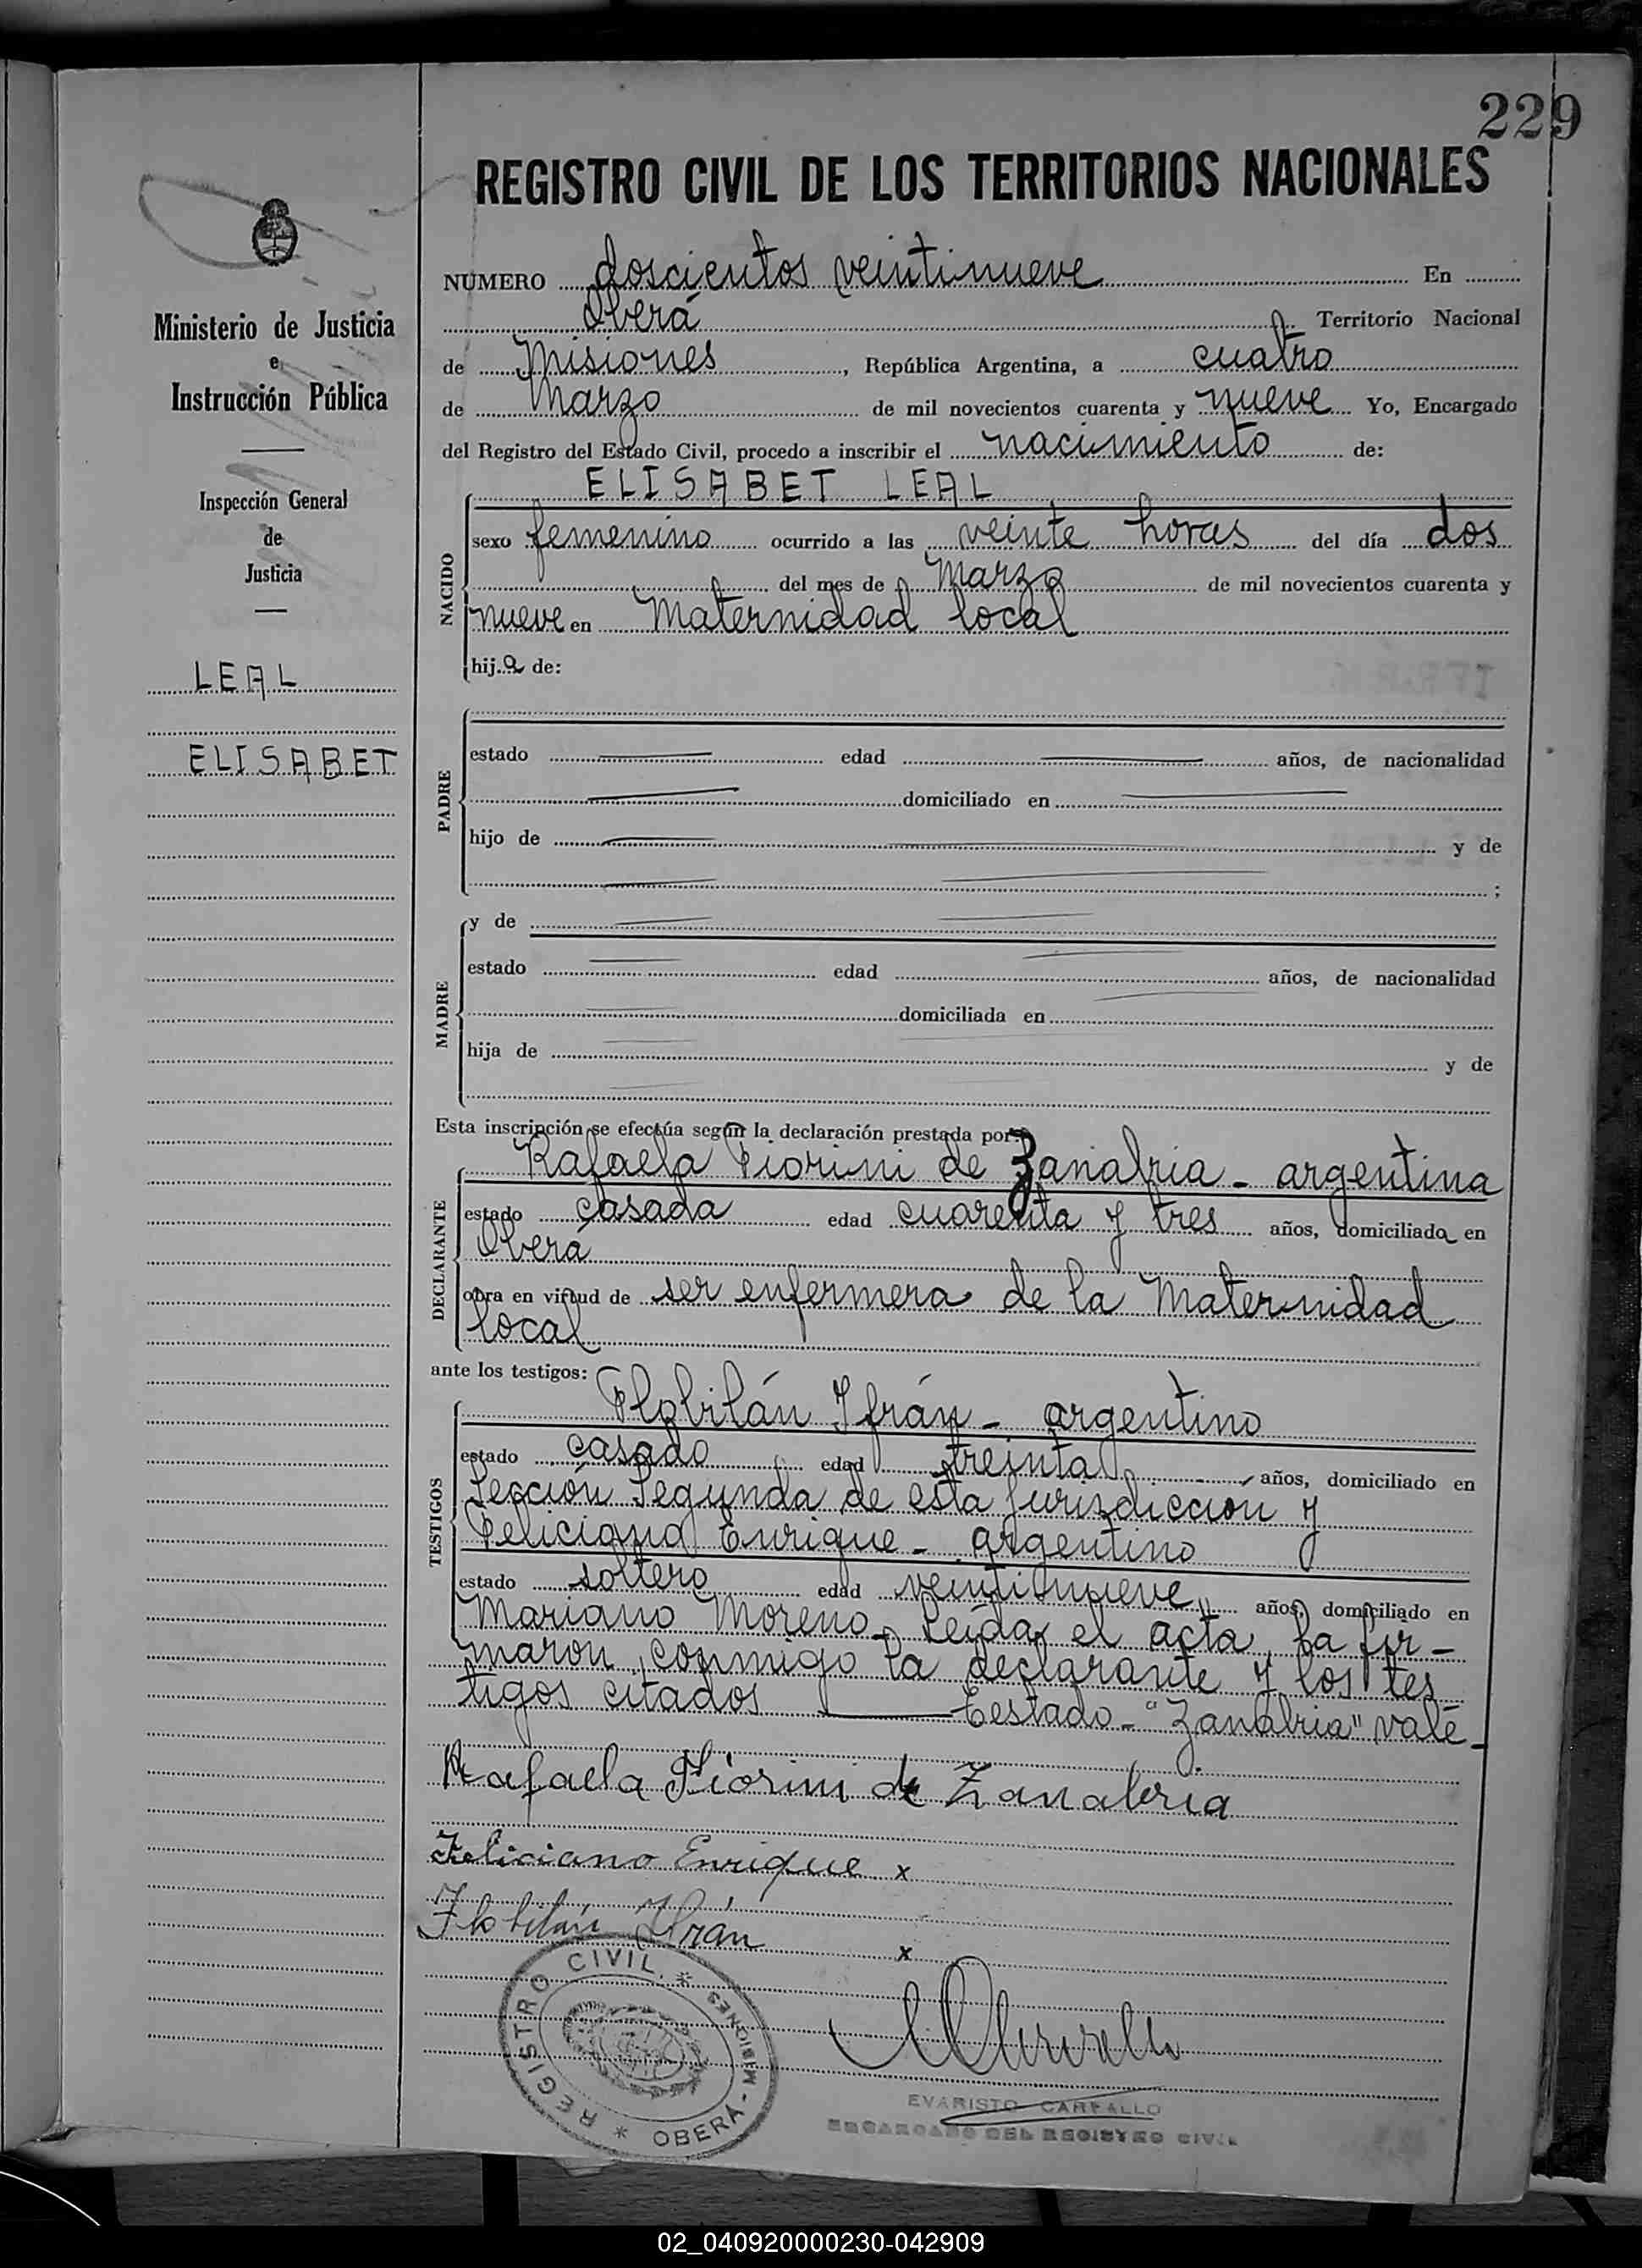 229
REGISTRO CIVIL DE LOS TERRITORIOS NACIONALES
Ministerio de Justicia
e
Instrucción Pública
Inspección General
de
Justicia
LEAL
ELISABET
NUMERO doscientos veintinueve En
Oberá Territorio Nacional
de Misiones, República Argentina, a cuatro
de Marzo de mil novecientos cuarenta y nueve Yo, Encargado
del Registro del Estado Civil, procedo a inscribir el nacimiento de:
ELISABET LEAL
NACIDO
sexo femenino ocurrido a las veinte horas del día dos
del mes de Marzo de mil novecientos cuarenta y
nueve en Maternidad local
hija de:
PADRE
estado edad años, de nacionalidad
domiciliado en
hijo de y de
;
MADRE
y de
estado edad años, de nacionalidad
domiciliada en
hija de y de
Esta inscripción se efectúa según la declaración prestada por:
DECLARANTE
Rafaela Fiorini de Zanabria - argentina
estado casada edad cuarenta y tres años, domiciliada en
Oberá
obra en virtud de ser enfermera de la Maternidad
local
ante los testigos:
TESTIGOS
Flobilán Ifrán - argentino
estado casado edad treinta años, domiciliado en
Sección Segunda de esta jurisdicción y
Feliciano Enrique - argentino
estado soltero edad veintinueve años, domiciliado en
Mariano Moreno. Leída el acta, la fir-
maron conmigo la declarante y los tes
tigos citados Testado - "Zanabria" vale -
Rafaela Fiorini de Zanabria
Feliciano Enrique x
Flobilán Ifrán x
REGISTRO CIVIL * MISIONES - OBERÁ *
EVARISTO CARFALLO
ENCARGADO DEL REGISTRO CIVIL
02_040920000230-042909